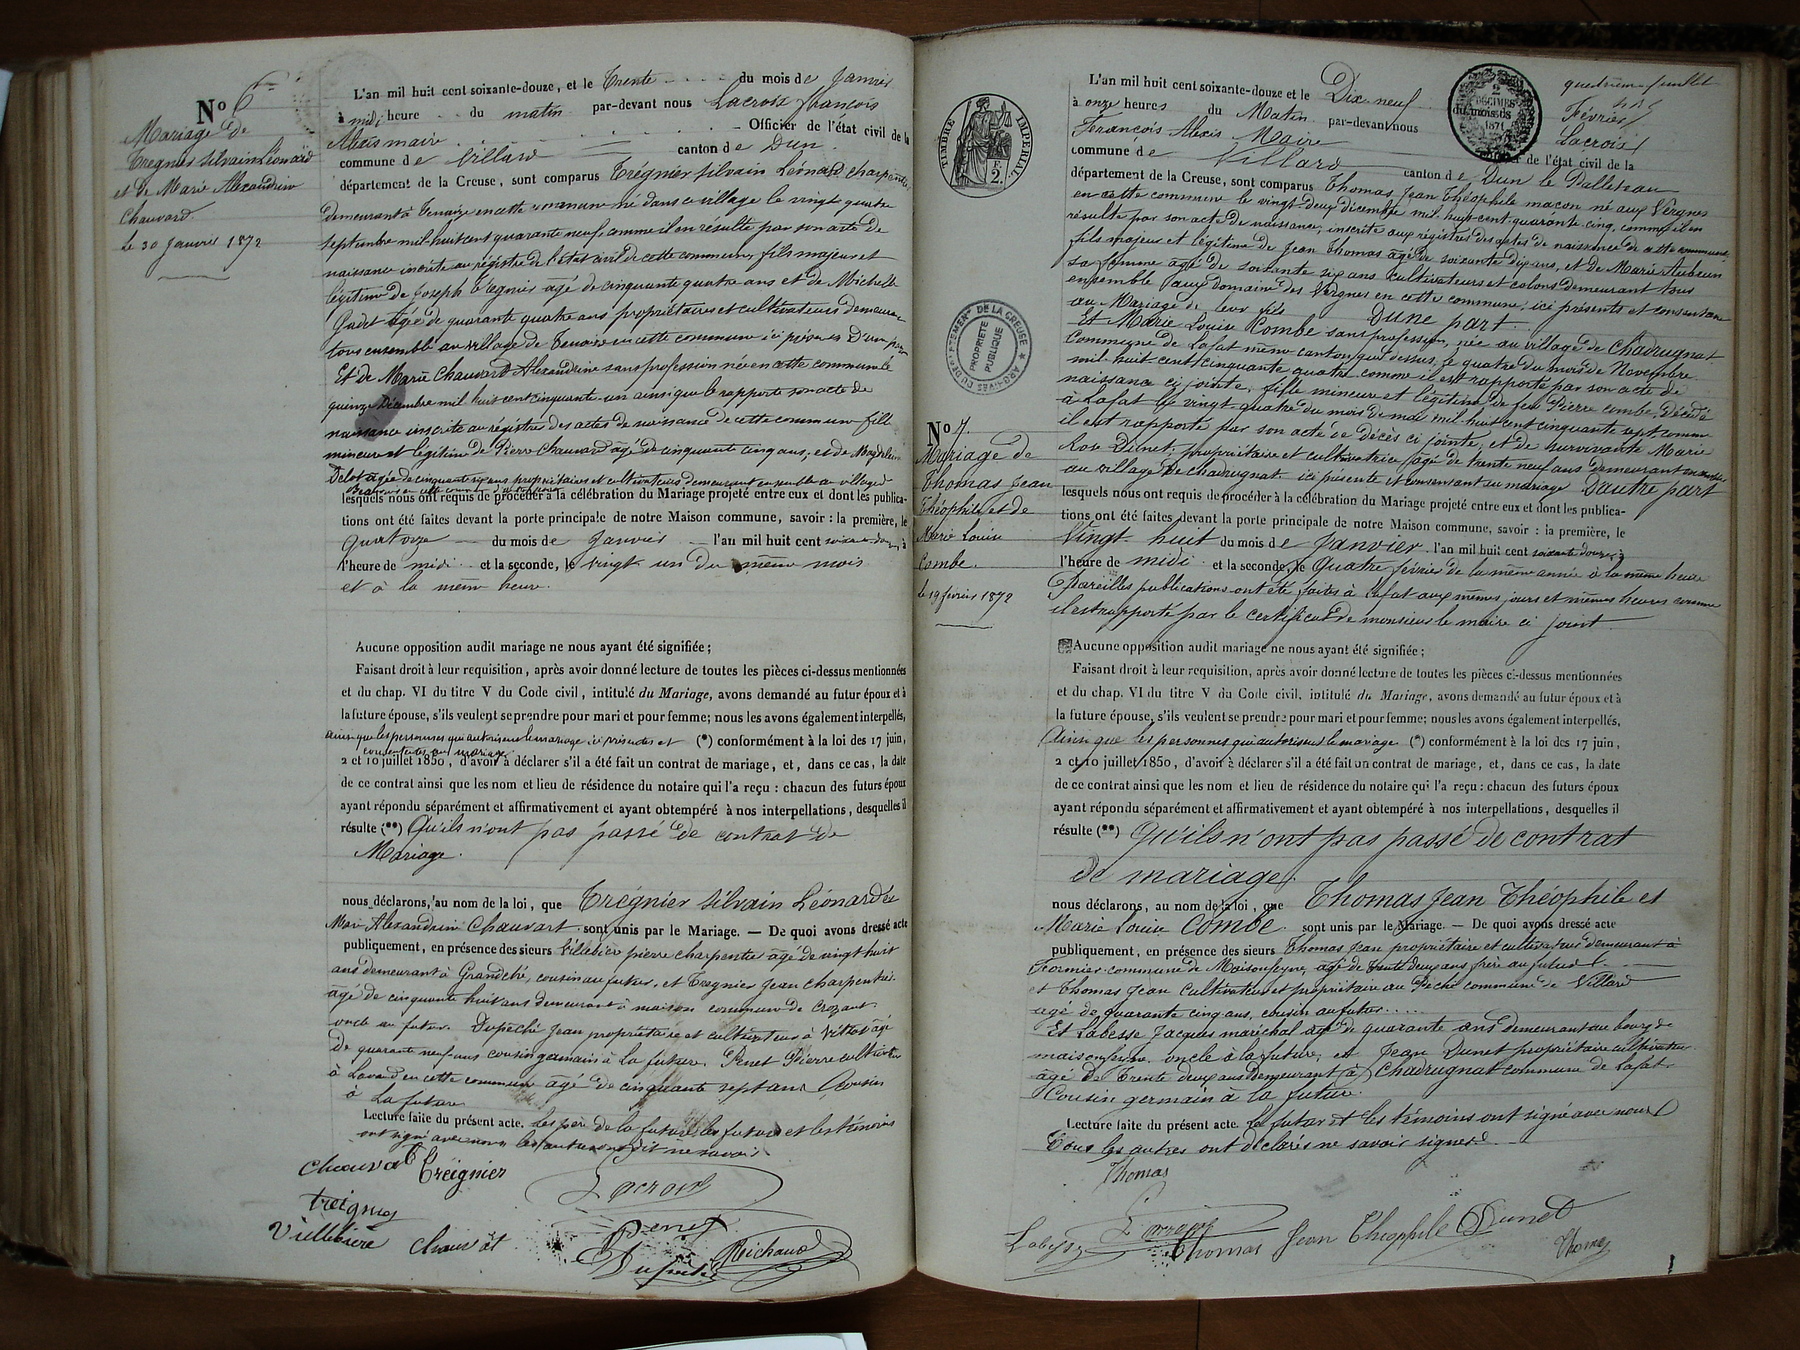 No 6
Mariage de
Trégnier Silvain Léonard
et de Marie Alexandrine
Chauvard.
le 30 Janvier 1872
L'an mil huit cent soixante-douze, et le Trente du mois de Janvier
à midi heure du matin par-devant nous Lacroix François
Alexis maire Officier de l'état civil de la
commune de Villard canton de Dun
département de la Creuse, sont comparus Trégnier Silvain Léonard charpentier
demeurant à en cette commune né dans ce village le vingt quatre
septembre mil huit cent quarante neuf comme il en résulte par son acte de
naissance inscrite au régistre de l'état civil de cette commune, fils majeur et
légitime de Joseph Tregnier agé de cinquante quatre ans et de Michelle
Gadet agée de quarante quatre ans propriétaires et cultivateurs demeurant
tous ensemble au village de en cette commune ici présents D'une part
Et de Marie Chauvard Alexandrine sans profession née en cette commune le
quinze Décembre mil huit cent cinquante-un ainsi que le rapporte son acte de
naissance inscrite au régistre des actes de naissance de cette commune fille
mineure et légitime de Pierre Chauvard âgé de cinquante cinq ans, et de Magdeleine
Délot agée de cinquante six ans propriétaires et cultivateurs demeurant ensemble au village
lesquels nous ont requis de procéder à la célébration du Mariage projeté entre eux et dont les publica-
tions ont été faites devant la porte principale de notre Maison commune, savoir : la première, le
quatorze du mois de Janvier l'an mil huit cent soixante-douze, à
l'heure de midi et la seconde, le vingt un du même mois
et à la même heure.
Aucune opposition audit mariage ne nous ayant été signifiée ;
Faisant droit à leur requisition, après avoir donné lecture de toutes les pièces ci-dessus mentionnées
et du chap. VI du titre V du Code civil, intitulé du Mariage, avons demandé au futur époux et à
la future épouse, s'ils veulent se prendre pour mari et pour femme; nous les avons également interpellés,
ainsi que les personnes qui autorisent le mariage ici présentes et (*) conformément à la loi des 17 juin,
consentantes au mariage
2 et 10 juillet 1850, d'avoir à déclarer s'il a été fait un contrat de mariage, et, dans ce cas, la date
de ce contrat ainsi que les nom et lieu de résidence du notaire qui l'a reçu : chacun des futurs époux
ayant répondu séparément et affirmativement et ayant obtempéré à nos interpellations, desquelles il
résulte (**) Qu'ils n'ont pas passé de contrat de
Mariage.
nous déclarons, au nom de la loi, que Trégnier Silvain Léonard et
Marie Alexandrine Chauvart sont unis par le Mariage. — De quoi avons dressé acte
publiquement, en présence des sieurs Villebière pierre charpentier âgé de vingt huit
ans demeurant à Grandché, cousin au futur, et Tregnier Jean charpentier
âgé de cinquante huit ans demeurant à maison commune de Crozant
oncle au futur. Dupeché Jean propriétaire et cultivateur à Villard agé
de quarante neuf ans cousin germain à la future. Penet Pierre cultivateur
à Lavaud en cette commune agé de cinquante sept ans Cousin
à la future
Lecture faite du présent acte. Les père de la future, les futurs et les témoins
ont signé avec nous les autres ont dit ne savoir.
Chauvat Treignier
Lacroix
treignier
Villebière chauvat
Penet
Dupeché
Michaud
quatrième feuillet
Lacroix
TIMBRE IMPERIAL
F. 2.
2 DÉCIMES
1871
ARCHIVES DU DÉPARTEMENT DE LA CREUSE
PROPRIÉTÉ PUBLIQUE
No 7.
Mariage de
Thomas Jean
Théophile et de
Marie Louise
Combe.
le 19 février 1872
L'an mil huit cent soixante-douze et le Dix neuf du mois de Février
à onze heures du Matin par-devant nous Lacroix
François Alexis Maire Officier de l'état civil de la
commune de Villard canton de Dun le Palleteau
département de la Creuse, sont comparus Thomas Jean Théophile maçon né aux Vergnes
en cette commune le vingt-deux décembre mil-huit-cent-quarante cinq, comme il en
résulte par son acte de naissance, inscrite aux régistres des actes de naissance de cette commune,
fils majeur et légitime de Jean Thomas âgé de soixante dix ans, et de Marie Aubrun
sa femme agé de soixante six ans cultivateurs et colons demeurant tous
ensemble aux domaine des Vergnes en cette commune, ici présents et consentant
au Mariage de leur fils D'une part.
Et Marie Louise Combe sans profession, née au village de Chadrugnat
commune de Lafat même canton que dessus, le quatre du mois de Novembre
mil huit cent cinquante quatre comme il est rapporté par son acte de
naissance ci jointe, fille mineure et légitime de feu Pierre combe, Décédé
à Lafat le vingt-quatre du mois de mai mil huit cent cinquante sept comme
il est rapporté par son acte de décès ci jointe, et de survivante Marie
Rose Dunet, propriétaire et cultivatrice, âgé de trente neuf ans demeurant ensemble
au village de chadrugnat. ici présente et consentant au mariage D'autre part
lesquels nous ont requis de procéder à la célébration du Mariage projeté entre eux et dont les publica-
tions ont été faites devant la porte principale de notre Maison commune, savoir : la première, le
Vingt-huit du mois de Janvier l'an mil huit cent soixante douze, à
l'heure de midi et la seconde, le Quatre février de la même année à la même heure
Pareilles publications ont été faites à Lafat aux mêmes jours et mêmes heures comme
il est rapporté par le certificat de monsieur le maire ci joint
Aucune opposition audit mariage ne nous ayant été signifiée ;
Faisant droit à leur requisition, après avoir donné lecture de toutes les pièces ci-dessus mentionnées
et du chap. VI du titre V du Code civil, intitulé du Mariage, avons demandé au futur époux et à
la future épouse, s'ils veulent se prendre pour mari et pour femme; nous les avons également interpellés,
Ainsi que les personnes qui autorisent le mariage (*) conformément à la loi des 17 juin,
2 et 10 juillet 1850, d'avoir à déclarer s'il a été fait un contrat de mariage, et, dans ce cas, la date
de ce contrat ainsi que les nom et lieu de résidence du notaire qui l'a reçu : chacun des futurs époux
ayant répondu séparément et affirmativement et ayant obtempéré à nos interpellations, desquelles il
résulte (**) Qu'ils n'ont pas passé de contrat
de mariage.
nous déclarons, au nom de la loi, que Thomas Jean Théophile et
Marie Louise Combe sont unis par le Mariage. — De quoi avons dressé acte
publiquement, en présence des sieurs Thomas Jean propriétaire et cultivateur demeurant à
Formier commune de Maisonfeyne, agé de trente deux ans frère au futur
et Thomas Jean cultivateur et propriétaire au Peché commune de Villard
agé de quarante cinq ans, cousin au futur
Et Labesse Jacques maréchal agé de quarante ans demeurant au bourg de
maisonfeyne oncle à la future, et Jean Dunet propriétaire cultivateur
agé de Trente deux ans Demeurant à Chadrugnat commune de Lafat
Cousin germain à la future.
Lecture faite du présent acte le futur et les témoins ont signé avec nous
Tous les autres ont déclarés ne savoir signer.
Thomas
Labesse
Lacroix
Thomas Jean Théophile Dunet
Thomas